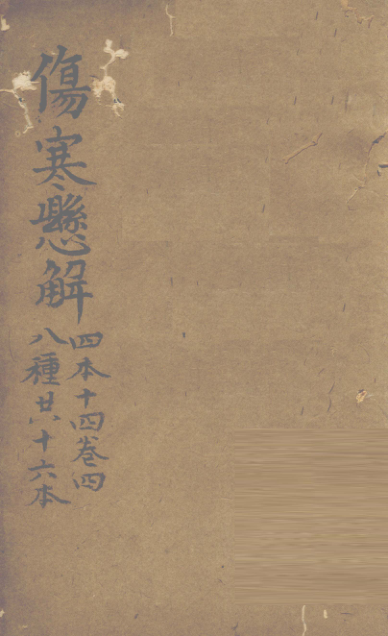 傷寒懸解
四本十四卷四
八種共十六本